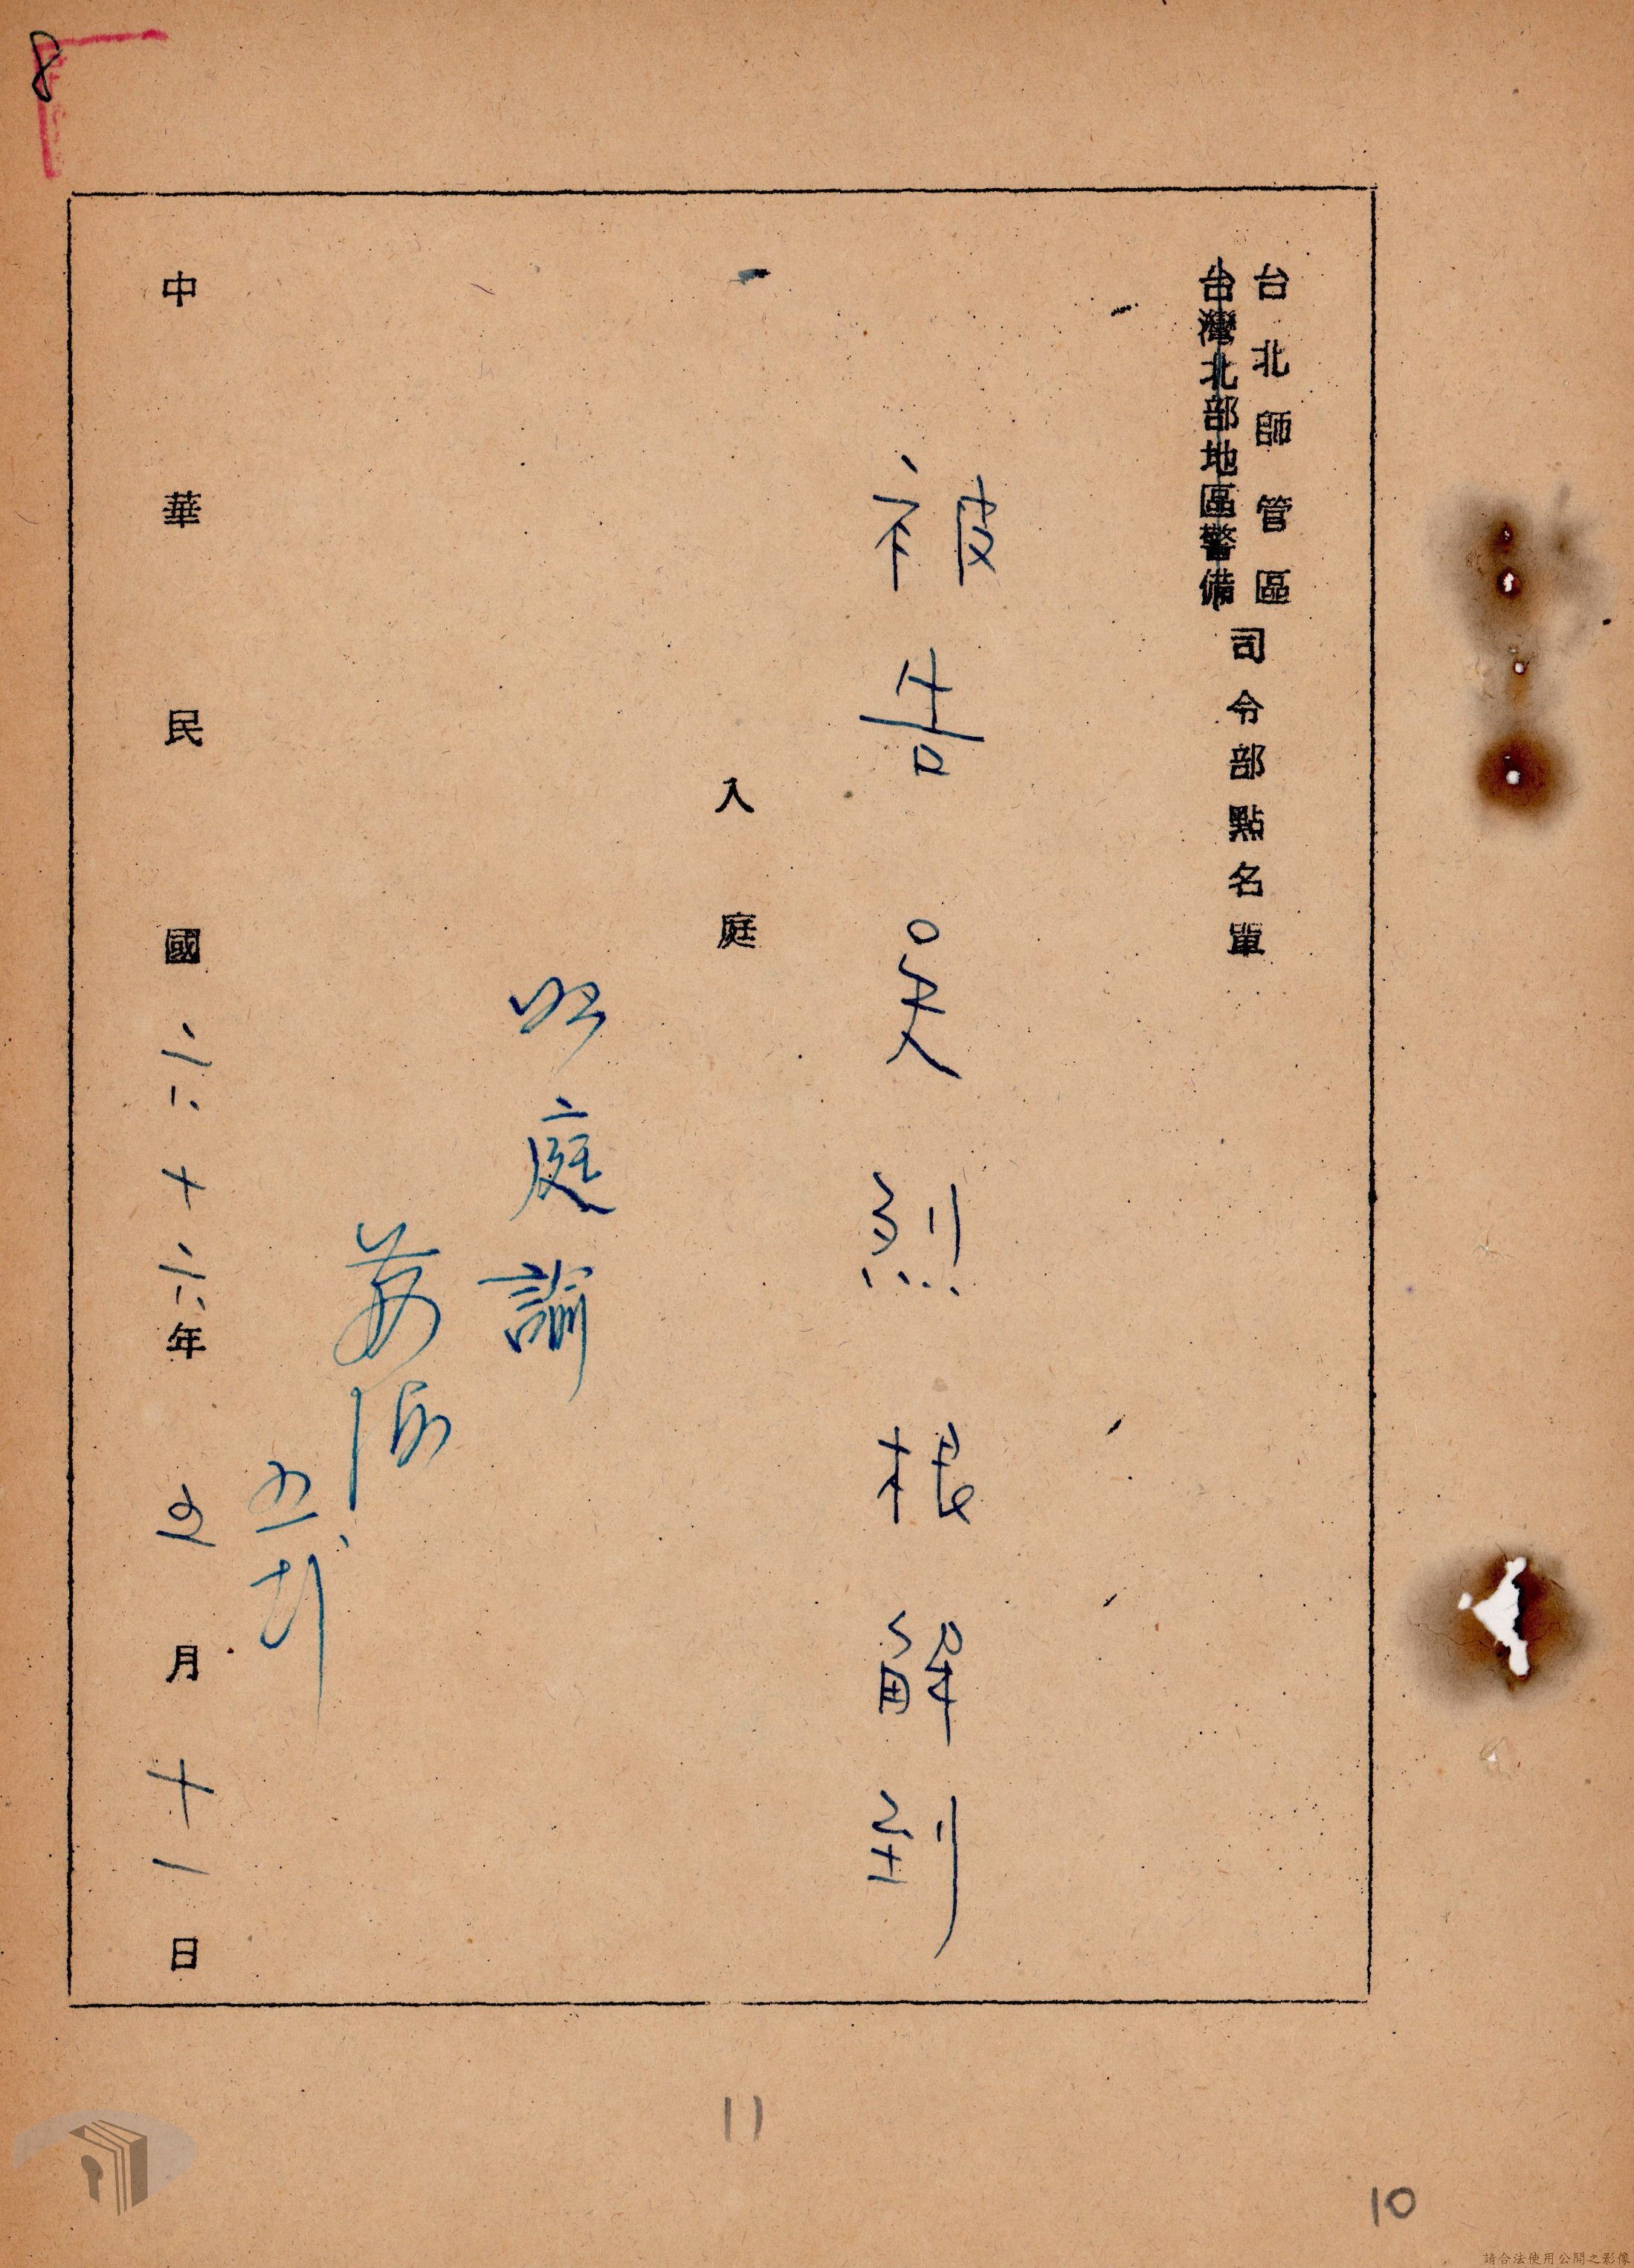 台北師管區
台灣北部地區警備
司令部點名單
被告吳烈根解到
入庭
如庭諭
中華民國三十六年五月十一日
8
11
10
請合法使用公開之影像